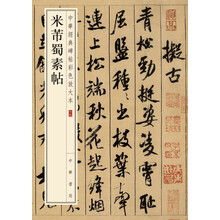 擬古
青松勁挺姿凌霄恥
屈盤種種出枝葉牽
連上松端秋花起絳烟
中華經典碑帖彩色放大本
米芾蜀素帖
中華書局